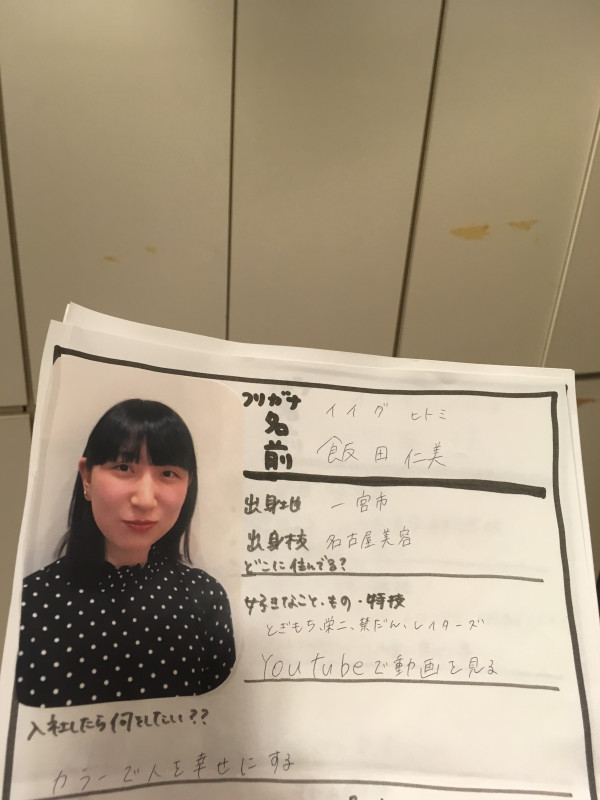 フリガナ イイダ ヒトミ
名前 飯田 仁美
出身地 一宮市
出身校 名古屋美容
どこに住んでる?
好きなこと・もの・特技
とぎもち、栄二、禁だん、レイターズ
Youtubeで動画を見る
入社したら何をしたい??
カラーで人を幸せにする